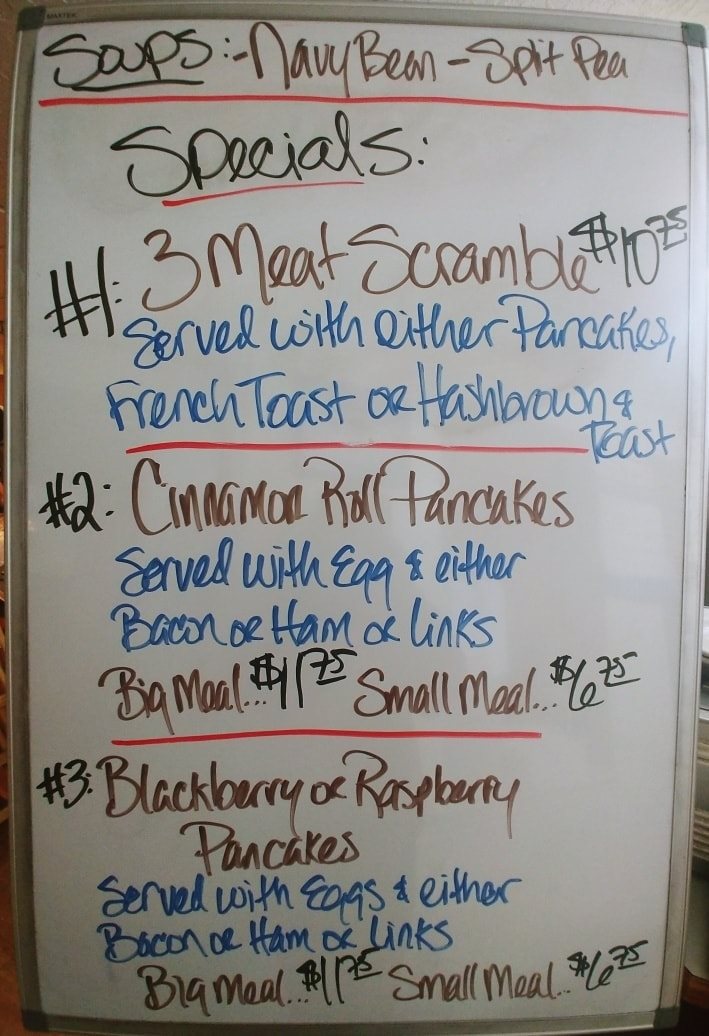 MAXTEK
Soups:-Navy Bean -Split Pea
Specials:
#1: 3 Meat Scramble $10 75
Served with either Pancakes,
French Toast or Hashbrown &
Toast
#2: Cinnamon Roll Pancakes
Served with Egg & either
Bacon or Ham or links
Big Meal...$11 75 Small Meal...$6 75
#3: Blackberry or Raspberry
Pancakes
Served with Eggs & either
Bacon or Ham or Links
Big Meal...$11 75 Small Meal...$6 75